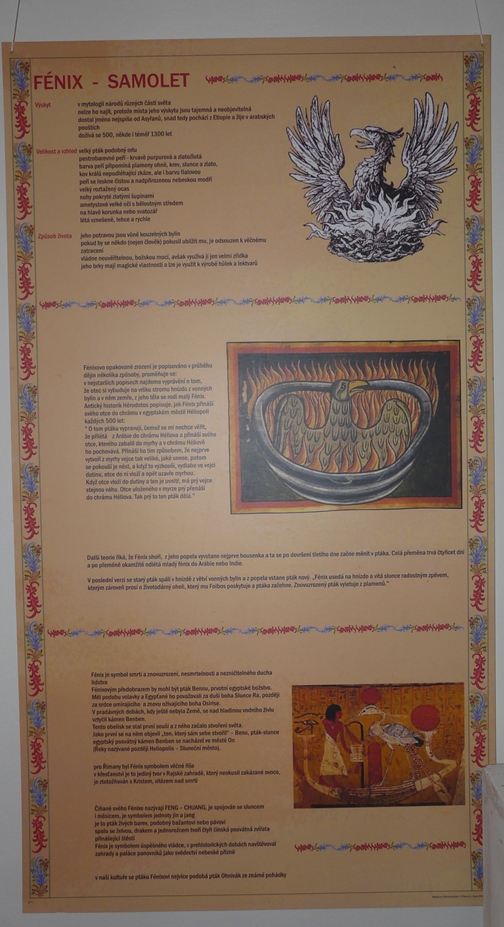 FÉNIX - SAMOLET
Výskyt
v mytologii národů různých částí světa
nelze ho najít, protože místa jeho výskytu jsou tajemná a neobjevitelná
dostal jméno nejspíše od Asyřanů, snad tedy pochází z Etiopie a žije v arabských
pouštích
dožívá se 500, někde i téměř 1300 let
Velikost a vzhled velký pták podobný orlu
pestrobarevné peří - krvavě purpurové a zlatožlutá
barva peří připomíná plameny ohně, krev, slunce a zlato,
kov králů nepodléhající zkáze, ale i barvu fialovou
peří se leskne čistou a nadpřirozenou nebeskou modří
velký roztažený ocas
nohy pokryté zlatými šupinami
ametystově velké oči s bělostným středem
na hlavě korunka nebo svatozář
létá vznešeně, lehce a rychle
Způsob života
jeho potravou jsou vůně kouzelných bylin
pokud by se někdo (nejen člověk) pokusil ublížit mu, je odsouzen k věčnému
zatracení
vládne neuvěřitelnou, božskou mocí, avšak využívá ji jen velmi zřídka
jeho brky mají magické vlastnosti a lze je využít k výrobě hůlek a lektvarů
Fénixovo opakované zrození je popisováno v průběhu
dějin několika způsoby, proměňuje se:
v nejstarších popisech najdeme vyprávění o tom,
že otec si vybuduje na vršku stromu hnízdo z vonných
bylin a v něm zemře, z jeho těla se rodí malý Fénix.
Antický historik Hérodotos popisuje, jak Fénix přináší
svého otce do chrámu v egyptském městě Héliopoli
každých 500 let:
" O tom ptáku vypravují, čemuž se mi nechce věřit,
že přilétá z Arábie do chrámu Hélova a přináší svého
otce, kterého zabalil do myrhy a v chrámu Hélově
ho pochovává. Přináší ho tím způsobem, že nejprve
vytvoří z myrhy vejce tak veliké, jaké unese, potom
se pokouší je nést, a když to vyzkouší, vydlabe ve vejci
dutinu, otce do ní vloží a opět uzavře myrhou.
Když otce vloží do dutiny a ten je uvnitř, má prý vejce
stejnou váhu. Otce uloženého v myrze prý přenáší
do chrámu Héliova. Tak prý to ten pták dělá."
Další teorie říká, že Fénix shoří, z jeho popela vyvstane nejprve housenka a ta se po dovršení třetího dne začne měnit v ptáka. Celá přeměna trvá čtyřicet dní
a po přeměně okamžitě odlétá mladý fénix do Arábie nebo Indie.
V poslední verzi se starý pták spálí v hnízdě z větví vonných bylin a z popela vstane pták nový. „Fénix usedá na hnízdo a vítá slunce radostným zpěvem,
kterým zároveň prosí o životadárný oheň, který mu Foibos poskytuje a ptáka zažehne. Znovuzrozený pták vyletuje z plamenů."
Fénix je symbol smrti a znovuzrození, nesmrtelnosti a nezničitelného ducha
lidstva
Fénixovým předobrazem by mohl být pták Bennu, prvotní egyptské božstvo.
Měl podobu volavky a Egypťané ho považovali za duši boha Slunce Ra, později
za srdce umírajícího a znovu ožívajícího boha Osirise.
V pradávných dobách, kdy ještě nebyla Země, se nad hladinou vodního živlu
vztyčil kámen Benben.
Tento obelisk se stal první souší a z něho začalo stvoření světa.
Jako první se na něm objevil „ten, který sám sebe stvořil" – Beno, pták-slunce
egyptský posvátný kámen Benben se nacházel ve městě On
(Řeky nazývané později Heliopolis – Sluneční město).
pro Římany byl Fénix symbolem věčné říše
v křesťanství je to jediný tvor v Rajské zahradě, který neokusil zakázané ovoce,
je ztotožňován s Kristem, vítězem nad smrtí
Číňané svého Fénixe nazývají FENG - CHUANG, je spojován se sluncem
i měsícem, je symbolem jednoty jin a jang
je to pták živých barev, podobný bažantovi nebo pávovi
spolu se želvou, drakem a jednorožcem tvoří čtyři čínská posvátná zvířata
přinášející štěstí
Fénix je symbolem úspěšného vládce, v prehistorických dobách navštěvoval
zahrady a paláce panovníků jako svědectví nebeské přízně
v naší kultuře se ptáku Fénixovi nejvíce podobá pták Ohnivák ze známé pohádky